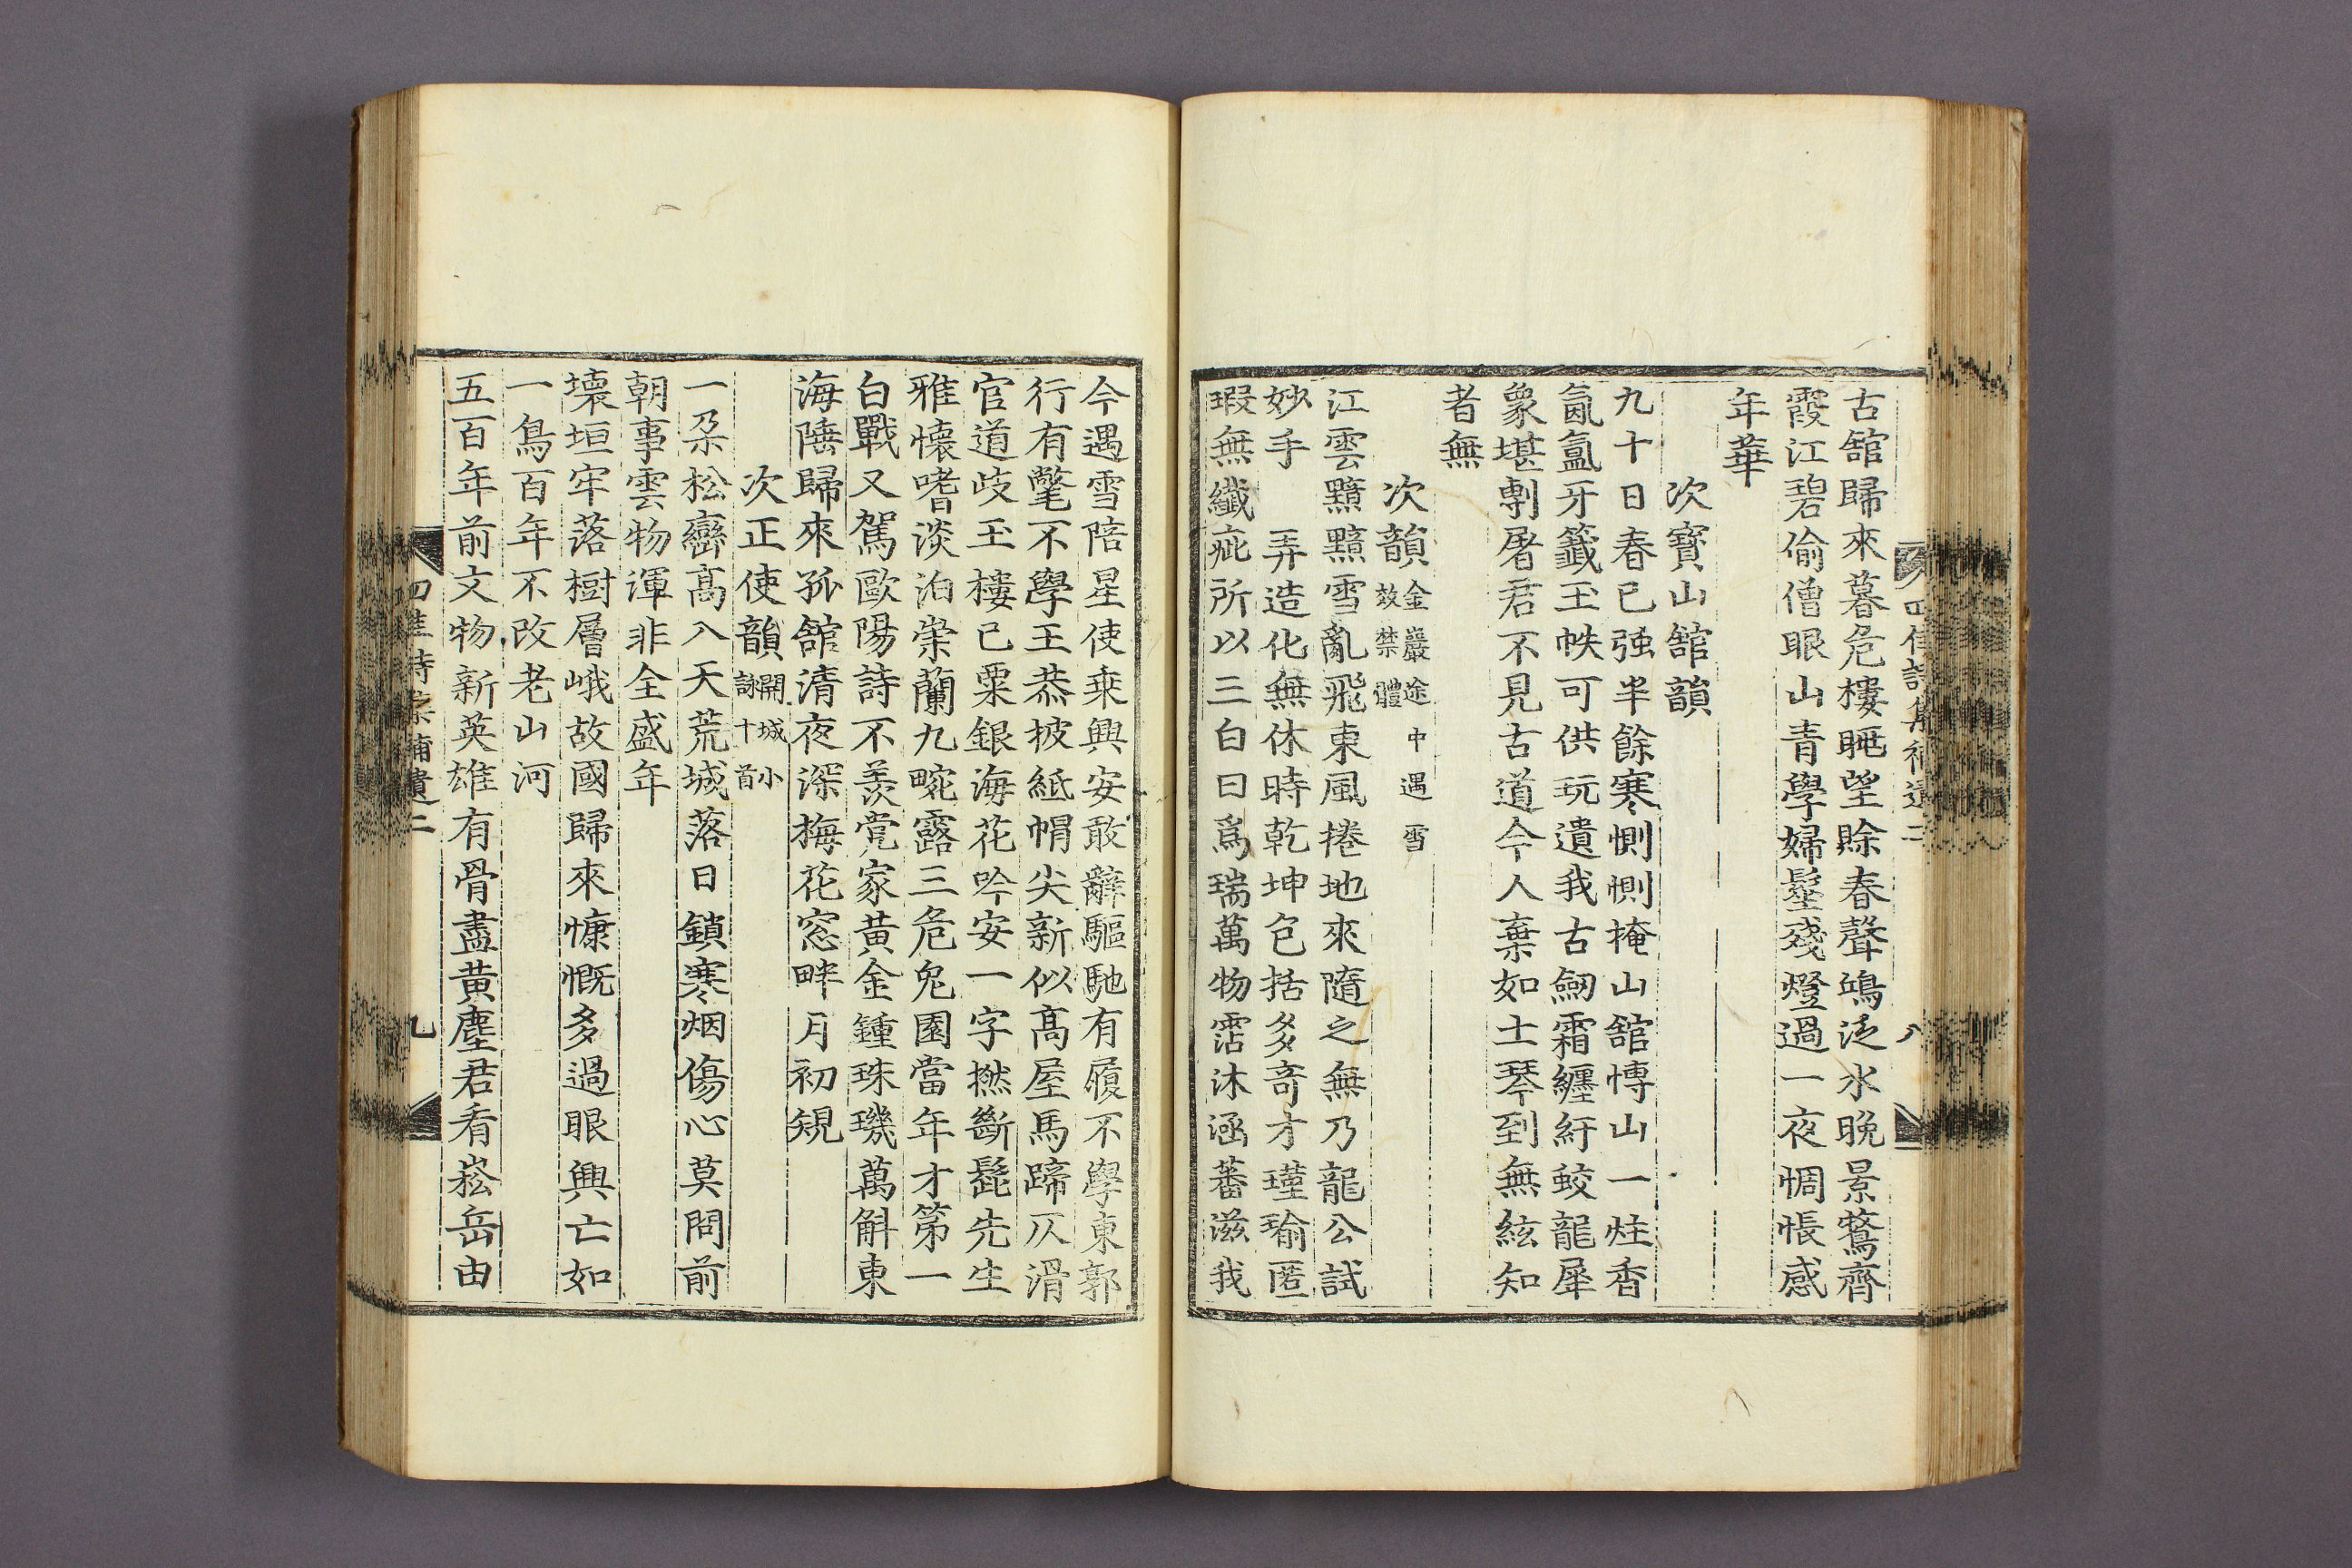 古舘歸來暮危樓晩望賖春聲鴻泛水晩景鶩齊
霞江碧偷僧眼山青學婦髽殘燈過一夜惆悵感
年華
次寶山舘韻
九十日春已强半餘寒惻惻掩山舘博山一炷香
氤氳牙籤玉帙可供玩遺我古劒霜纏紆蛟龍犀
象堪剸屠君不見古道今人棄如土琴到無絃知
者無
次韻金巖途中遇雪
效禁體
江雲黯黯雪亂飛東風捲地來隨之無乃龍公試
妙手 弄造化無休時乾坤包括多奇才瑾瑜匿
瑕無纖疵所以三白曰爲瑞萬物霑沐涵蕃滋我
四佳詩集補遺二 八
今遇雪陪星使乘興安敢辭驅馳有履不學東郭
行有氅不學王恭披紙帽尖新似高屋馬蹄仄滑
官道歧玉樓已粟銀海花吟安一字撚斷髭先生
雅懷嗜淡泊崇蘭九畹露三危兔園當年才第一
白戰又駕歐陽詩不羨党家黄金鍾珠璣萬斛東
海陲歸來孤舘清夜深梅花窓畔月初規
次正使韻開城小
詠十首
一朶松巒高入天荒城落日鎖寒烟傷心莫問前
朝事雲物渾非全盛年
壞垣牢落樹層峨故國歸來慷慨多過眼興亡如
一鳥百年不改老山河
五百年前文物新英雄有骨盡黄塵君看崧岳由
四佳詩集補遺二 九